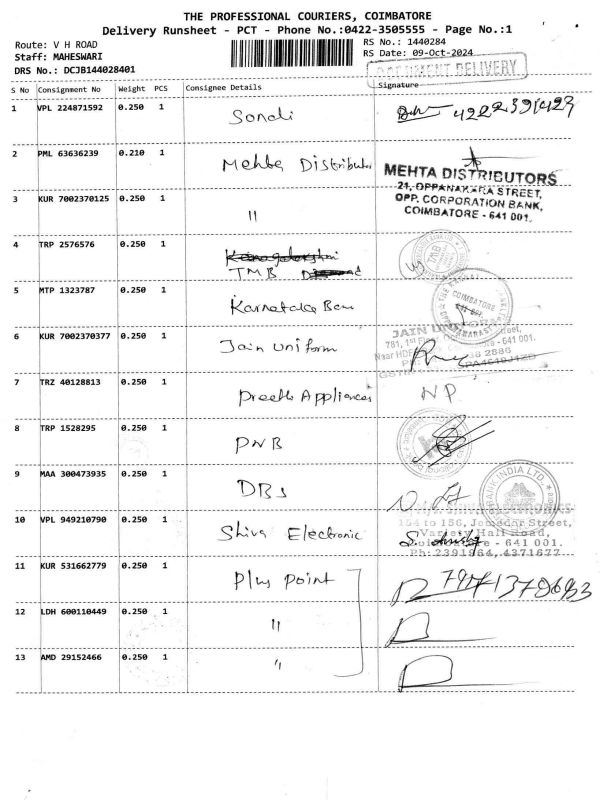 THE PROFESSIONAL COURIERS, COIMBATORE
Delivery Runsheet - PCT - Phone No.:0422-3505555 - Page No.:1
Route: V H ROAD
Staff: MAHESWARI
DRS No.: DCJB144028401
RS No.: 1440284
RS Date: 09-Oct-2024
DOCUMENT DELIVERY
S No Consignment No Weight PCS Consignee Details Signature
1 VPL 224871592 0.250 1 Sonali
2 PML 63636239 0.210 1 Mehta Distributor
MEHTA DISTRIBUTORS
21, OPPANAKARA STREET,
OPP. CORPORATION BANK,
COIMBATORE - 641 001.
3 KUR 7002370125 0.250 1 "
4 TRP 2576576 0.250 1
TMB
TMB
5 MTP 1323787 0.250 1 Karnataka Ban
COIMBATORE
6 KUR 7002370377 0.250 1 Jain Uniform
JAIN
781, 1st
- 641 001.
7 TRZ 40128813 0.250 1 Preethi Appliances NP
8 TRP 1528295 0.250 1 PNB
9 MAA 300473935 0.250 1 DBS
BANK INDIA LTD.
10 VPL 949210790 0.250 1 Shiva Electronic
154 to 156, Jamedar Street,
Variety Hall Road,
Coimbatore - 641 001.
Ph: 2391964, 4371677
11 KUR 531662779 0.250 1 Plus Point
12 LDH 600110449 0.250 1 "
13 AMD 29152466 0.250 1 "